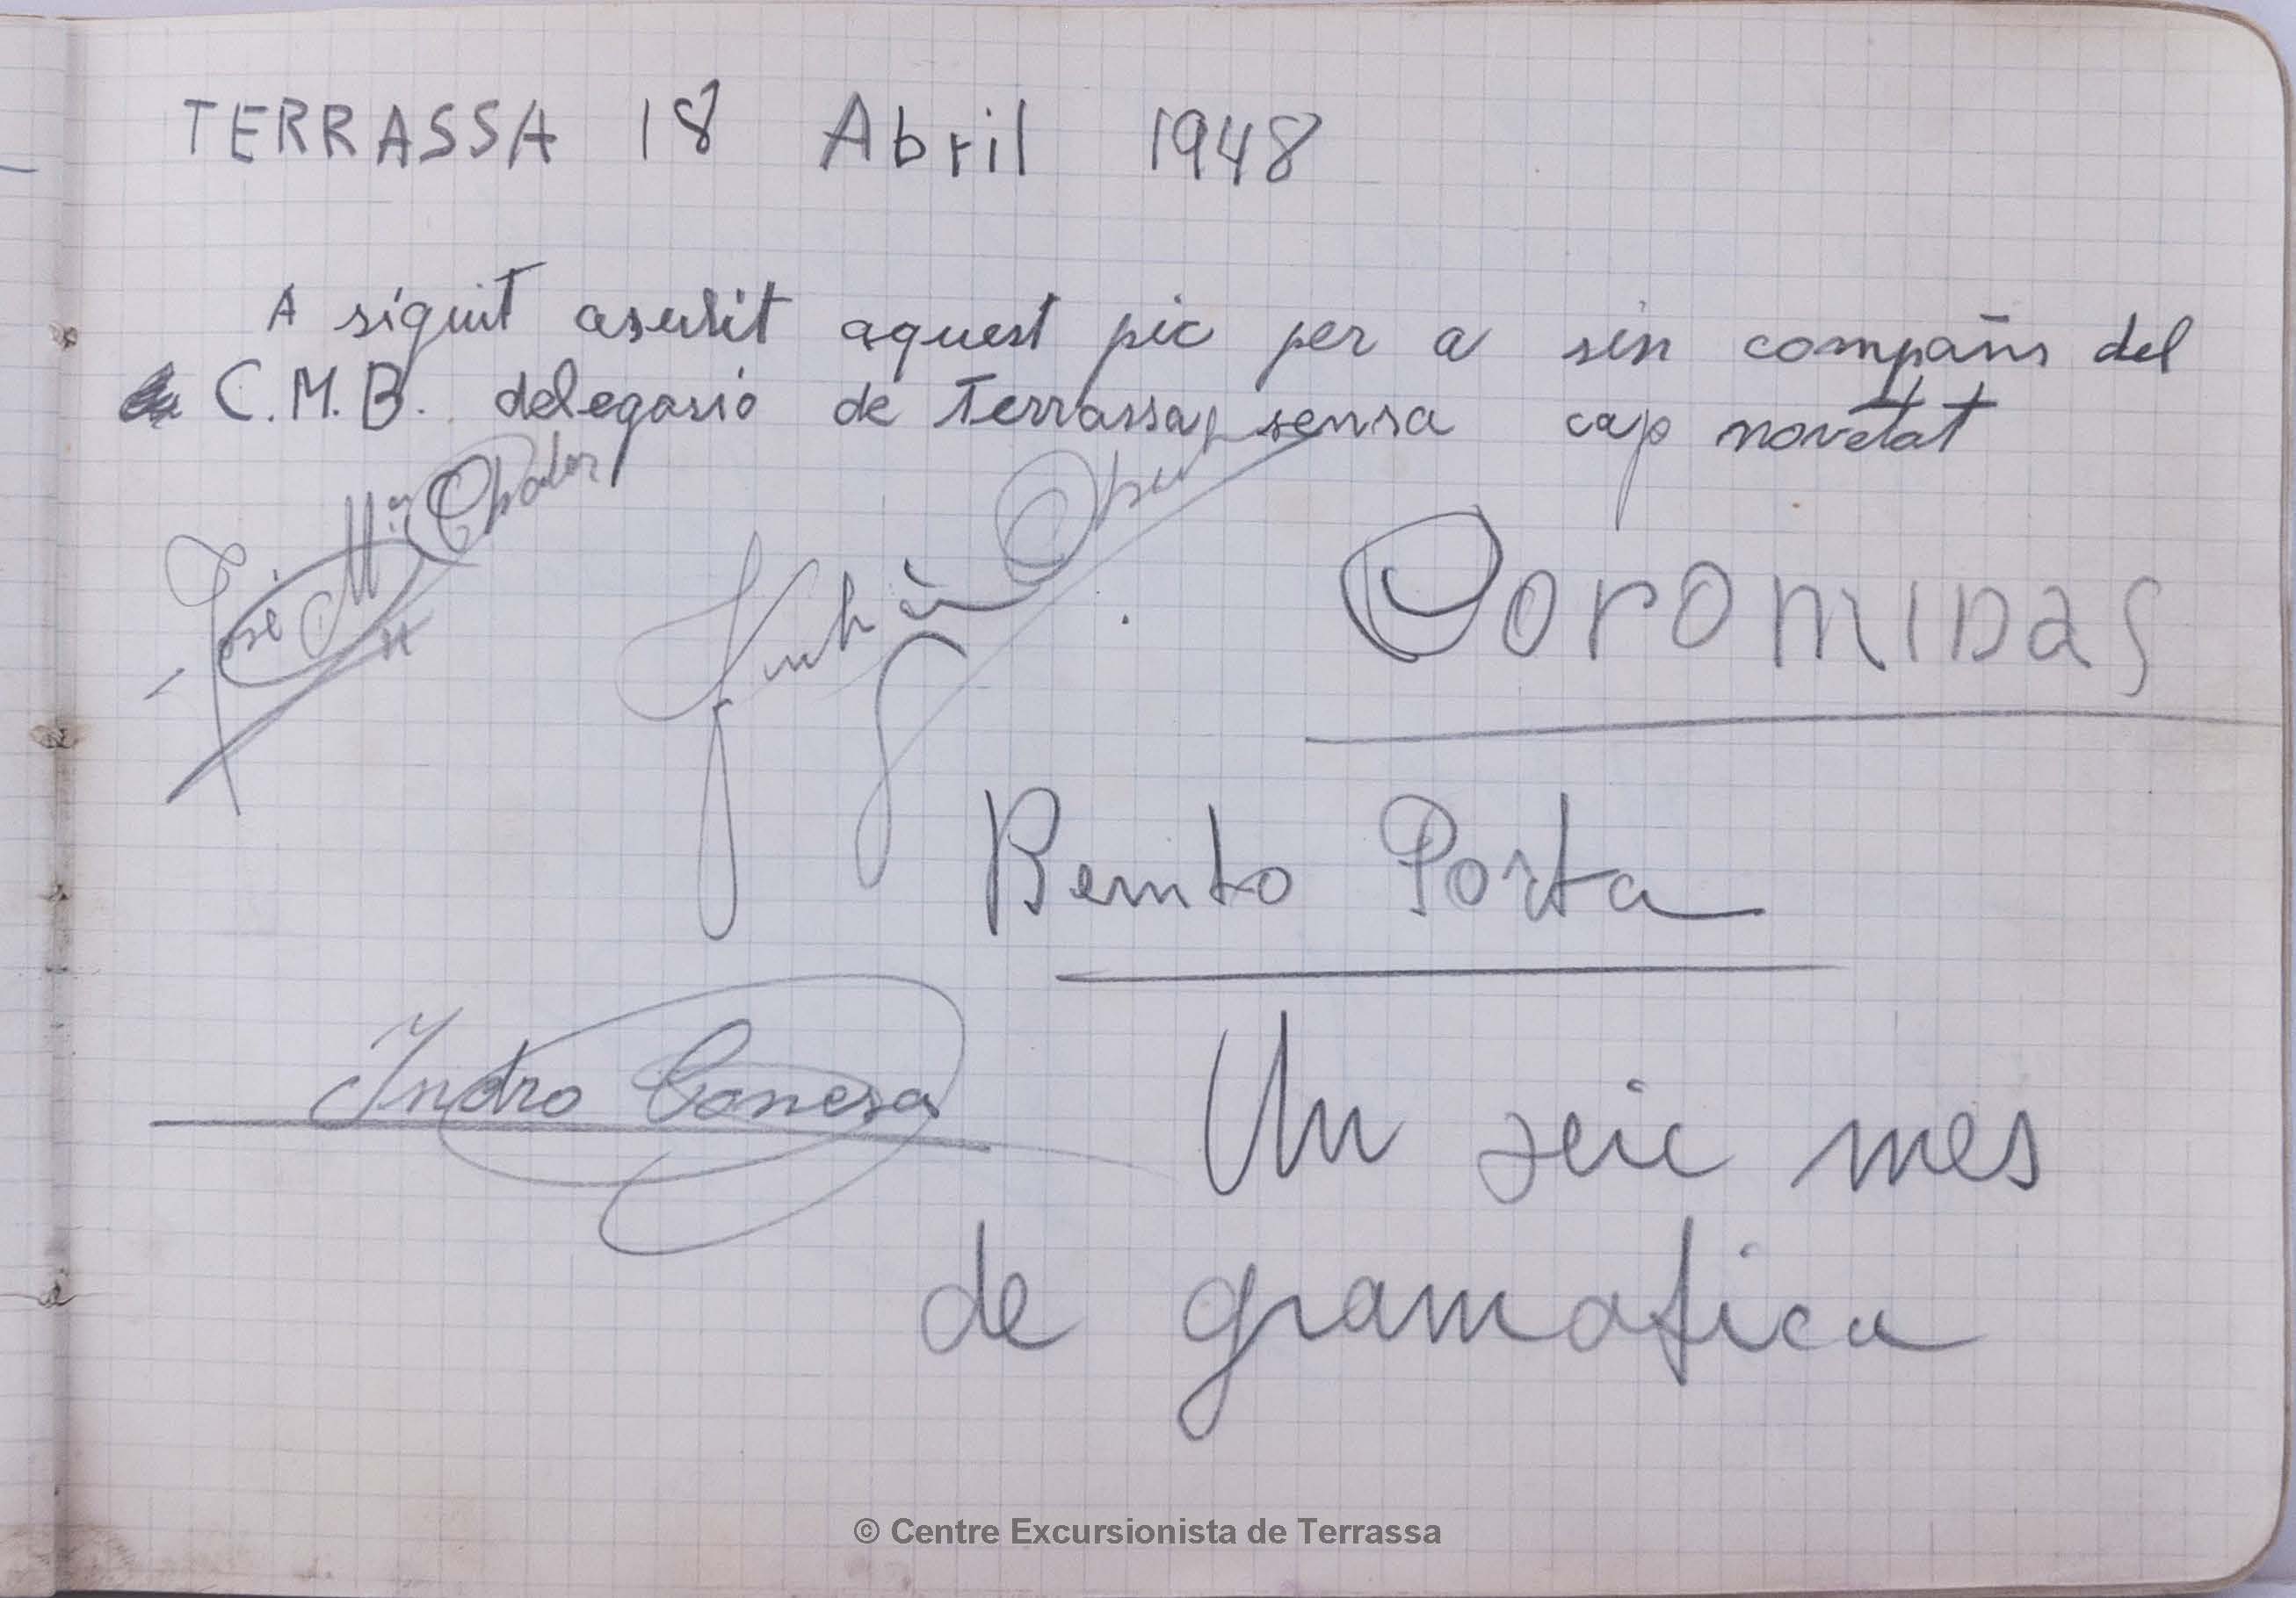 TERRASSA 18 Abril 1948
A siguit aserit aquest pic per a sin compañs del
C.M.B. delegasió de Terrassa, sensa cap novetat
José Mª
Corominas
Benito Porta
Conesa
Un seic mes
de gramatica
© Centre Excursionista de Terrassa